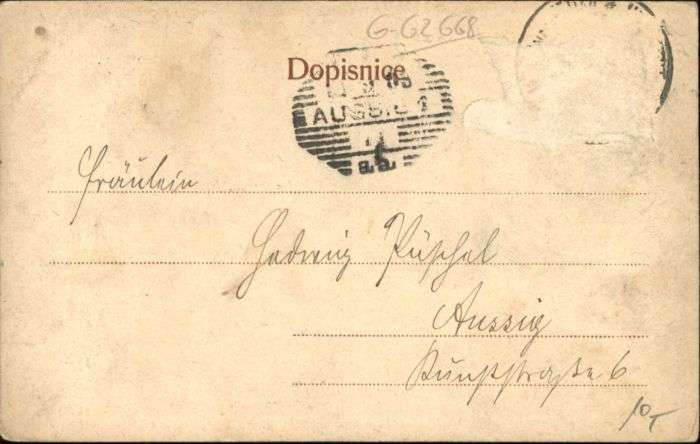 G-G2668
Dopisnice
AUSSIG 1
Fräulein
Hedwig Püschel
Aussig
Kunststraße 6